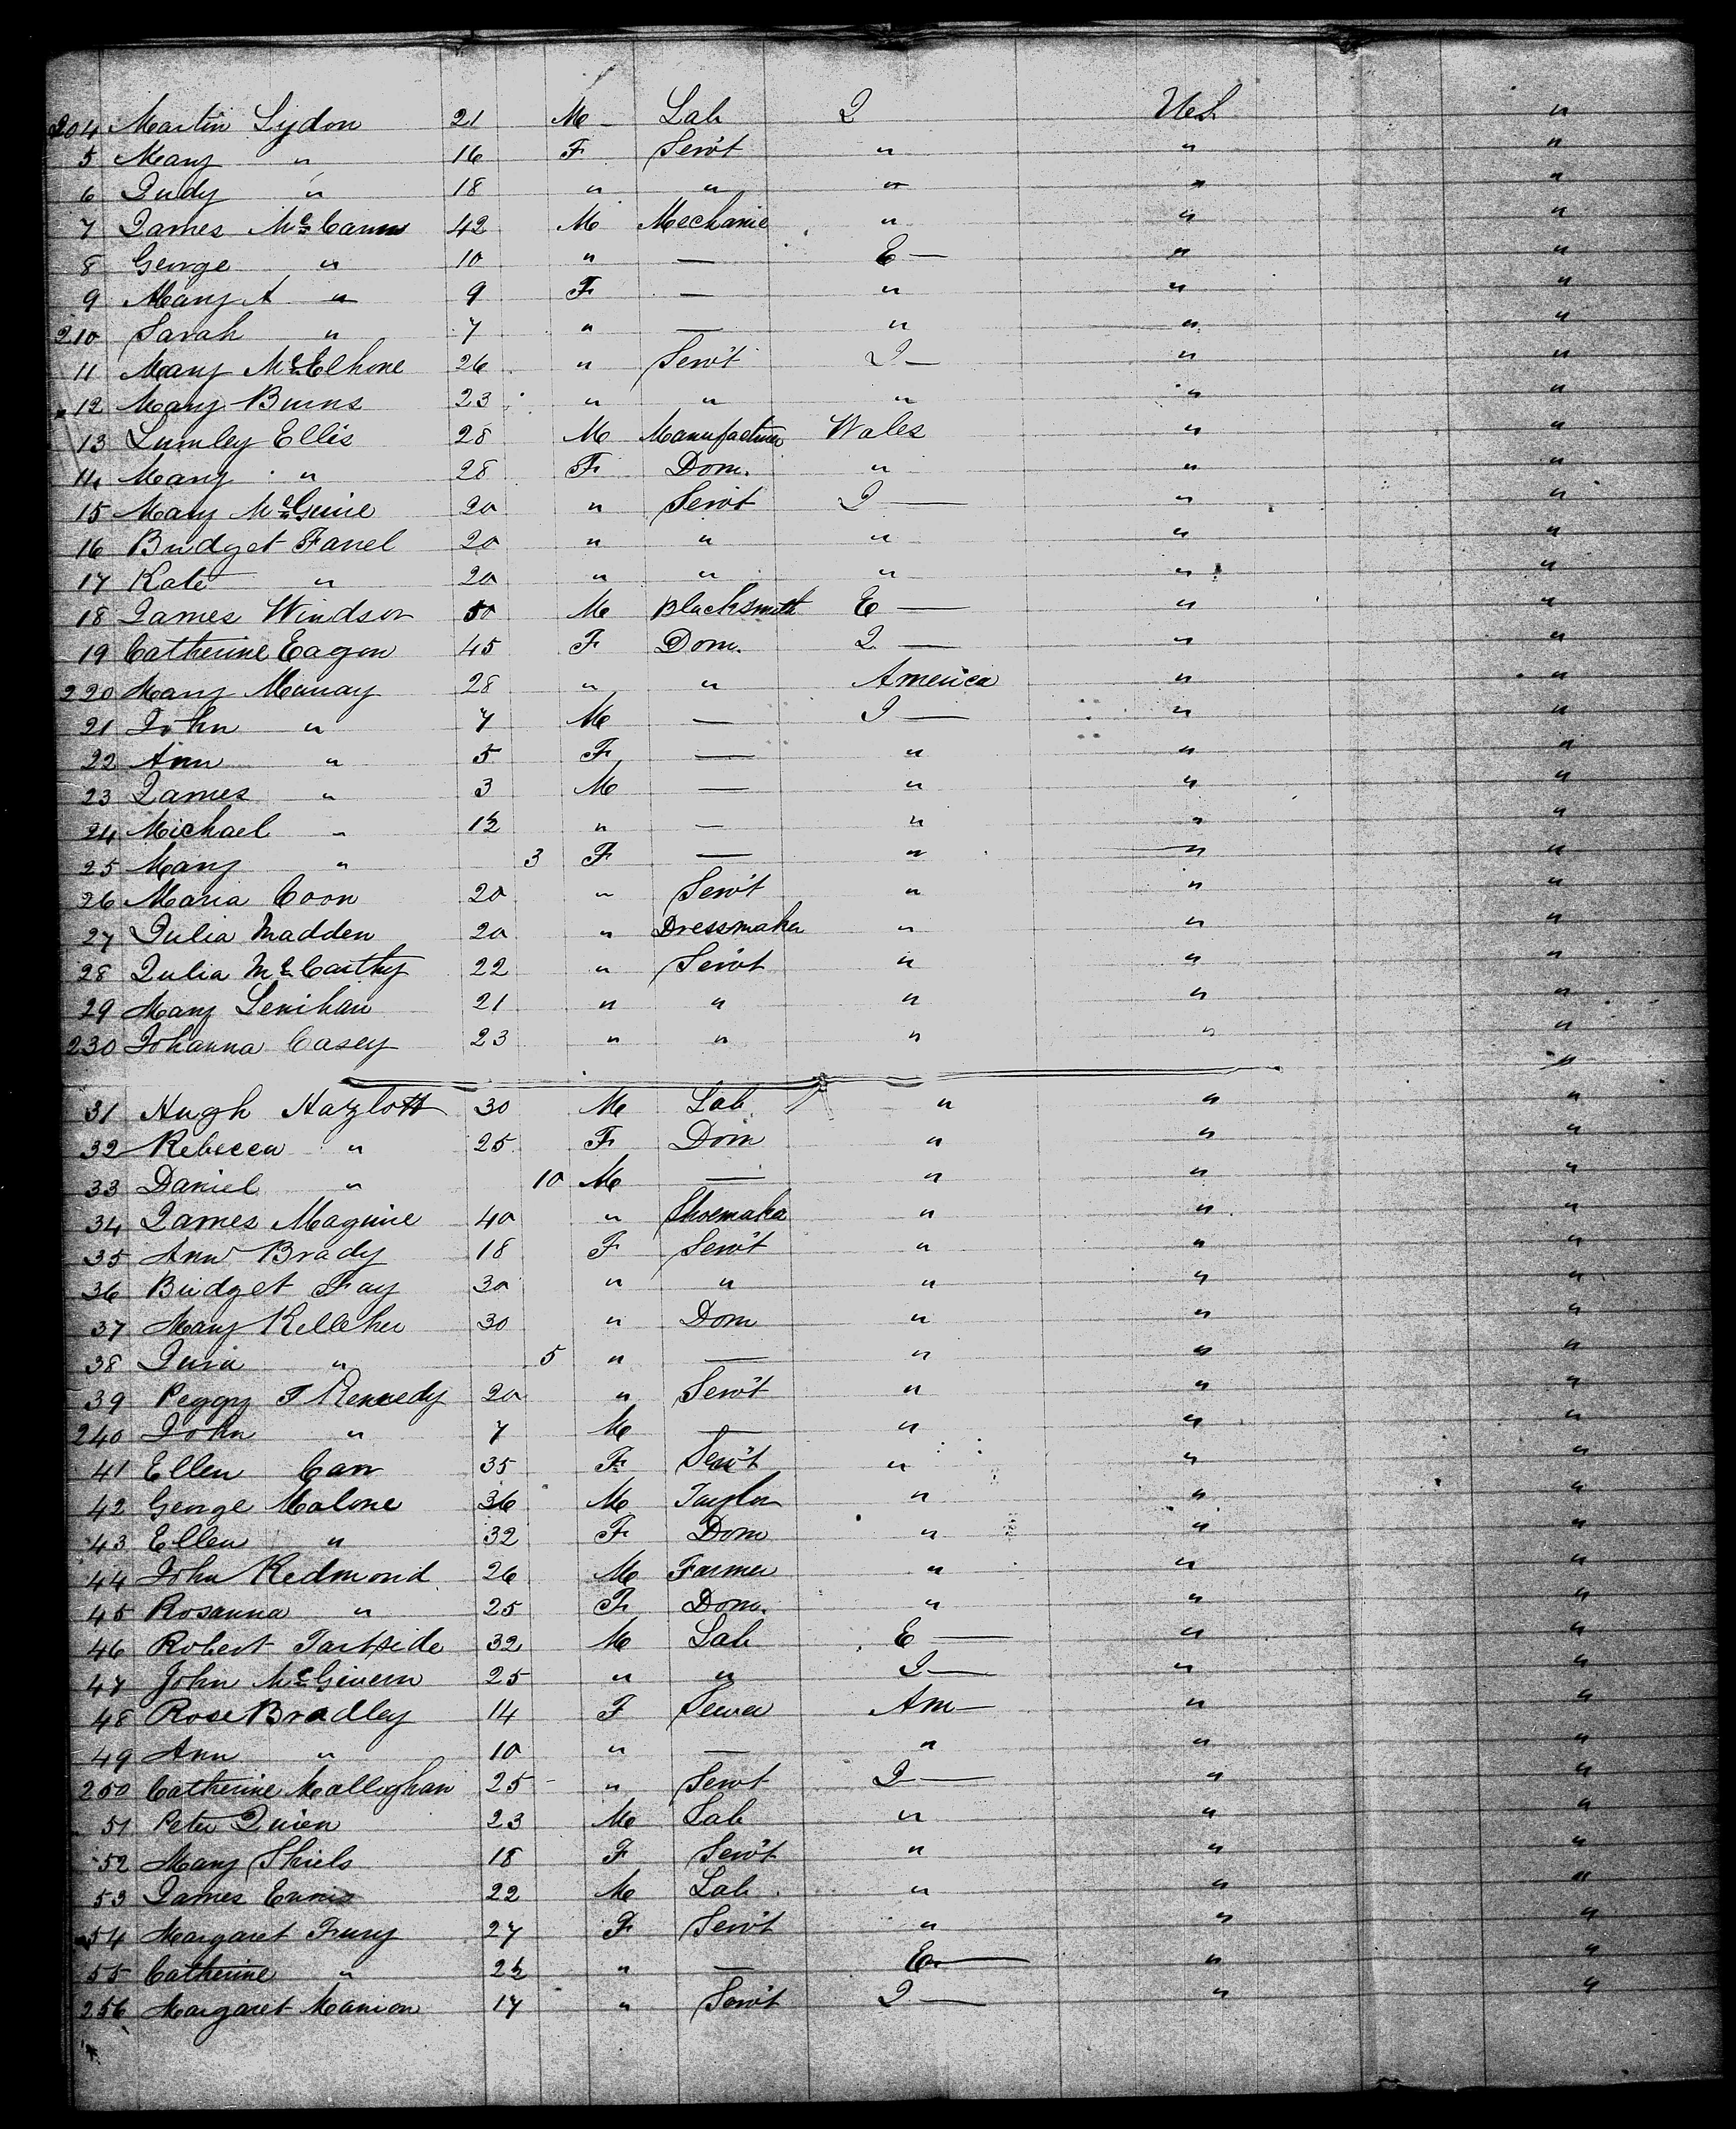 204 Martin Lydon 21 M Lab I U.S. "
5 Mary " 16 F Serv't " " "
6 Judy " 18 " " " " "
7 James McCann 42 M Mechanic " " "
8 George " 10 " — E — " "
9 Mary A " 9 F — " " "
210 Sarah " 7 " — " " "
11 Mary McElhone 26 " Serv't I — " "
12 Mary Burns 23 " " " " "
13 Lumley Ellis 28 M Manufacturer Wales " "
14 Mary " 28 F Dom. " " "
15 Mary McGuire 20 " Serv't I — " "
16 Bridget Farrel 20 " " " " "
17 Kate " 20 " " " " "
18 James Windsor 50 M Blacksmith E — " "
19 Catherine Eagon 45 F Dom. I — " "
220 Mary Murray 28 " " America " "
21 John " 7 M — I — " "
22 Ann " 5 F — " " "
23 James " 3 M — " " "
24 Michael " " — " " "
25 Mary " 3 F — " " "
26 Maria Coon 20 " Serv't " " "
27 Julia Madden 20 " Dressmaker " " "
28 Julia McCarthy 22 " Serv't " " "
29 Mary Lenihan 21 " " " " "
230 Johanna Casey 23 " " " " "
"
31 Hugh Hazlott 30 M Lab. " " "
32 Rebecca " 25 F Dom " " "
33 Daniel " 10 M — " " "
34 James Maguire 40 " Shoemaker " " "
35 Ann Brady 18 F Serv't " " "
36 Bridget Fay 30 " " " " "
37 Mary Kelleher 30 " Dom " " "
38 " 5 " — " " "
39 Peggy T Kennedy 20 " Serv't " " "
240 John " 7 M — " " "
41 Ellen Carr 35 F Serv't " " "
42 George Malone 36 M Taylor " " "
43 Ellen " 32 F Dom " " "
44 John Redmond 26 M Farmer " " "
45 Rosanna " 25 F Dom. " " "
46 Robert 32 M Lab E — " "
47 John McGivern 25 " " I — " "
48 Rose Bradley 14 F Sewer Am — " "
49 Ann " 10 " — " " "
250 Catherine Mallaghan 25 " Servt I — " "
51 Peter 23 M Lab " " "
52 Mary Shiels 18 F Serv't " " "
53 James Ennis 22 M Lab " " "
54 Margaret Fury 27 F Serv't " " "
55 Catherine " " — E — " "
256 Margaret Manion 17 " Serv't I — " "